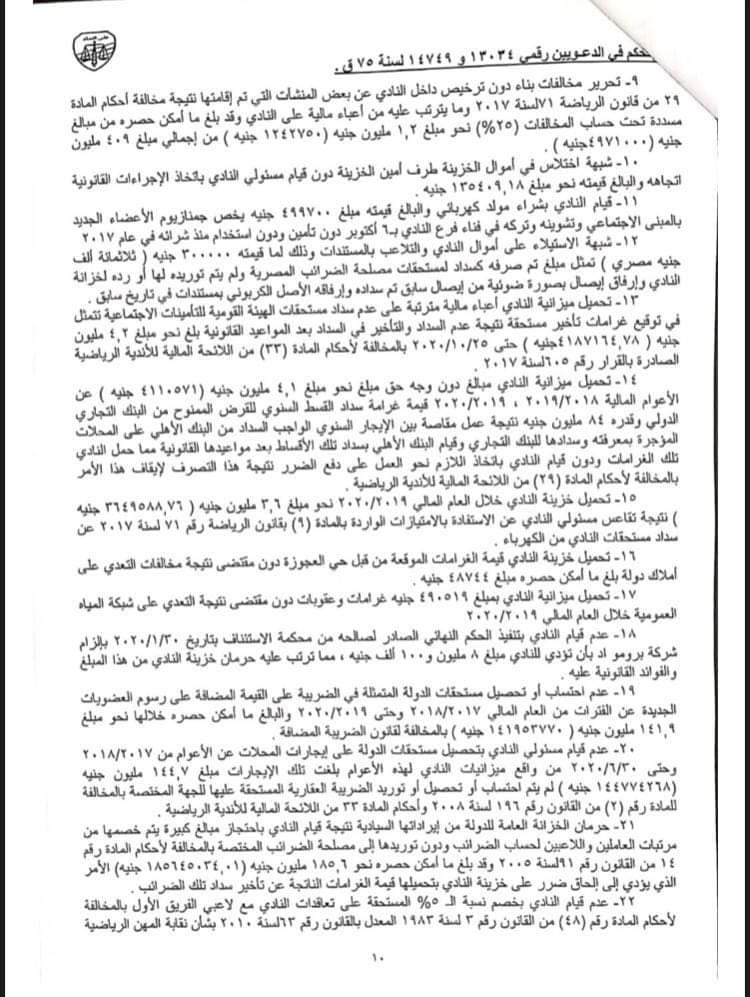 الحكم في الدعويين رقمي ١٣٠٣٤ و ١٤٧٤٩ لسنة ٧٥ ق .
٩- تحرير مخالفات بناء دون ترخيص داخل النادي عن بعض المنشآت التي تم إقامتها نتيجة مخالفة أحكام المادة
٢٩ من قانون الرياضة ٧١ لسنة ٢٠١٧ وما يترتب عليه من أعباء مالية على النادي وقد بلغ ما أمكن حصره من مبالغ
مسددة تحت حساب المخالفات (٢٥%) نحو مبلغ ١,٢ مليون جنيه (١٢٤٢٧٥٠ جنيه ) من إجمالي مبلغ ٤٠٩ مليون
جنيه (٤٩٧١٠٠٠جنيه ) .
١٠- شبهة اختلاس في أموال الخزينة طرف أمين الخزينة دون قيام مسئولي النادي باتخاذ الإجراءات القانونية
اتجاهه والبالغ قيمته نحو مبلغ ١٣٥٤٠٩,١٨ جنيه .
١١- قيام النادي بشراء مولد كهربائي والبالغ قيمته مبلغ ٤٩٩٧٠٠ جنيه يخص جمنازيوم الأعضاء الجديد
بالمبنى الاجتماعي وتشوينه وتركه في فناء فرع النادي بـ٦ أكتوبر دون تأمين ودون استخدام منذ شرائه في عام ٢٠١٧
١٢- شبهة الاستيلاء على أموال النادي والتلاعب بالمستندات وذلك لما قيمته ٣٠٠٠٠٠ جنيه ( ثلاثمائة ألف
جنيه مصري ) تمثل مبلغ تم صرفه كسداد لمستحقات مصلحة الضرائب المصرية ولم يتم توريده لها أو رده لخزانة
النادي وإرفاق إيصال بصورة ضوئية من إيصال سابق تم سداده وإرفاقه الأصل الكربوني بمستندات في تاريخ سابق .
١٣- تحميل ميزانية النادي أعباء مالية مترتبة على عدم سداد مستحقات الهيئة القومية للتأمينات الاجتماعية تتمثل
في توقيع غرامات تأخير مستحقة نتيجة عدم السداد والتأخير في السداد بعد المواعيد القانونية بلغ نحو مبلغ ٤,٢ مليون
جنيه ( ٤١٨٧١٦٤,٧٨جنيه ) حتى ٢٠٢٠/١٠/٢٥ بالمخالفة لأحكام المادة (٣٣) من اللائحة المالية للأندية الرياضية
الصادرة بالقرار رقم ٦٠٥لسنة ٢٠١٧ .
١٤- تحميل ميزانية النادي مبالغ دون وجه حق مبلغ نحو مبلغ ٤,١ مليون جنيه (٤١١٠٥٧١ جنيه ) عن
الأعوام المالية ٢٠١٩/٢٠١٨ ، ٢٠٢٠/٢٠١٩ قيمة غرامة سداد القسط السنوي للقرض الممنوح من البنك التجاري
الدولي وقدره ٨٤ مليون جنيه نتيجة عمل مقاصة بين الإيجار السنوي الواجب السداد من البنك الأهلي على المحلات
المؤجرة بمعرفته وسدادها للبنك التجاري وقيام البنك الأهلي بسداد تلك الأقساط بعد مواعيدها القانونية مما حمل النادي
تلك الغرامات ودون قيام النادي باتخاذ اللازم نحو العمل على دفع الضرر نتيجة هذا التصرف لإيقاف هذا الأمر
بالمخالفة لأحكام المادة (٢٩) من اللائحة المالية للأندية الرياضية .
١٥- تحميل خزينة النادي خلال العام المالي ٢٠٢٠/٢٠١٩ نحو مبلغ ٣,٦ مليون جنيه ( ٣٦٤٩٥٨٨,٧٦ جنيه
) نتيجة تقاعس مسئولي النادي عن الاستفادة بالامتيازات الواردة بالمادة (٩) بقانون الرياضة رقم ٧١ لسنة ٢٠١٧ عن
سداد مستحقات النادي من الكهرباء .
١٦- تحميل خزينة النادي قيمة الغرامات الموقعة من قبل حي العجوزة دون مقتضى نتيجة مخالفات التعدي على
أملاك دولة بلغ ما أمكن حصره مبلغ ٤٨٧٤٤ جنيه .
١٧- تحميل ميزانية النادي بمبلغ ٤٩٠٥١٩ جنيه غرامات وعقوبات دون مقتضى نتيجة التعدي على شبكة المياه
العمومية خلال العام المالي ٢٠٢٠/٢٠١٩
١٨- عدم قيام النادي بتنفيذ الحكم النهائي الصادر لصالحه من محكمة الاستئناف بتاريخ ٢٠٢٠/١/٣٠ بإلزام
شركة برومو اد بأن تؤدي للنادي مبلغ ٨ مليون و١٠٠ ألف جنيه ، مما ترتب عليه حرمان خزينة النادي من هذا المبلغ
والفوائد القانونية عليه .
١٩- عدم احتساب أو تحصيل مستحقات الدولة المتمثلة في الضريبة على القيمة المضافة على رسوم العضويات
الجديدة عن الفترات من العام المالي ٢٠١٨/٢٠١٧ وحتى ٢٠٢٠/٢٠١٩ والبالغ ما أمكن حصره خلالها نحو مبلغ
١٤١,٩ مليون جنيه ( ١٤١٩٥٣٧٧٠ جنيه ) بالمخالفة لقانون الضريبة المضافة .
٢٠- عدم قيام مسئولي النادي بتحصيل مستحقات الدولة على إيجارات المحلات عن الأعوام من ٢٠١٨/٢٠١٧
وحتى ٢٠٢٠/٦/٣٠ من واقع ميزانيات النادي لهذه الأعوام بلغت تلك الإيجارات مبلغ ١٤٤,٧ مليون جنيه
(١٤٤٧٧٤٢٦٨ جنيه ) لم يتم احتساب أو تحصيل أو توريد الضريبة العقارية المستحقة عليها للجهة المختصة بالمخالفة
للمادة رقم (٢) من القانون رقم ١٩٦ لسنة ٢٠٠٨ وأحكام المادة ٣٣ من اللائحة المالية للأندية الرياضية .
٢١- حرمان الخزانة العامة للدولة من إيراداتها السيادية نتيجة قيام النادي باحتجاز مبالغ كبيرة يتم خصمها من
مرتبات العاملين واللاعبين لحساب الضرائب ودون توريدها إلى مصلحة الضرائب المختصة بالمخالفة لأحكام المادة رقم
١٤ من القانون رقم ٩١لسنة ٢٠٠٥ وقد بلغ ما أمكن حصره نحو ١٨٥,٦ مليون جنيه (١٨٥٦٤٥٠٣٤,٠١ جنيه) الأمر
الذي يؤدي إلى إلحاق ضرر على خزينة النادي بتحميلها قيمة الغرامات الناتجة عن تأخير سداد تلك الضرائب .
٢٢- عدم قيام النادي بخصم نسبة الـ ٥% المستحقة على تعاقدات النادي مع لاعبي الفريق الأول بالمخالفة
لأحكام المادة رقم (٤٨) من القانون رقم ٣ لسنة ١٩٨٣ المعدل بالقانون رقم ٦٣لسنة ٢٠١٠ بشأن نقابة المهن الرياضية
١٠